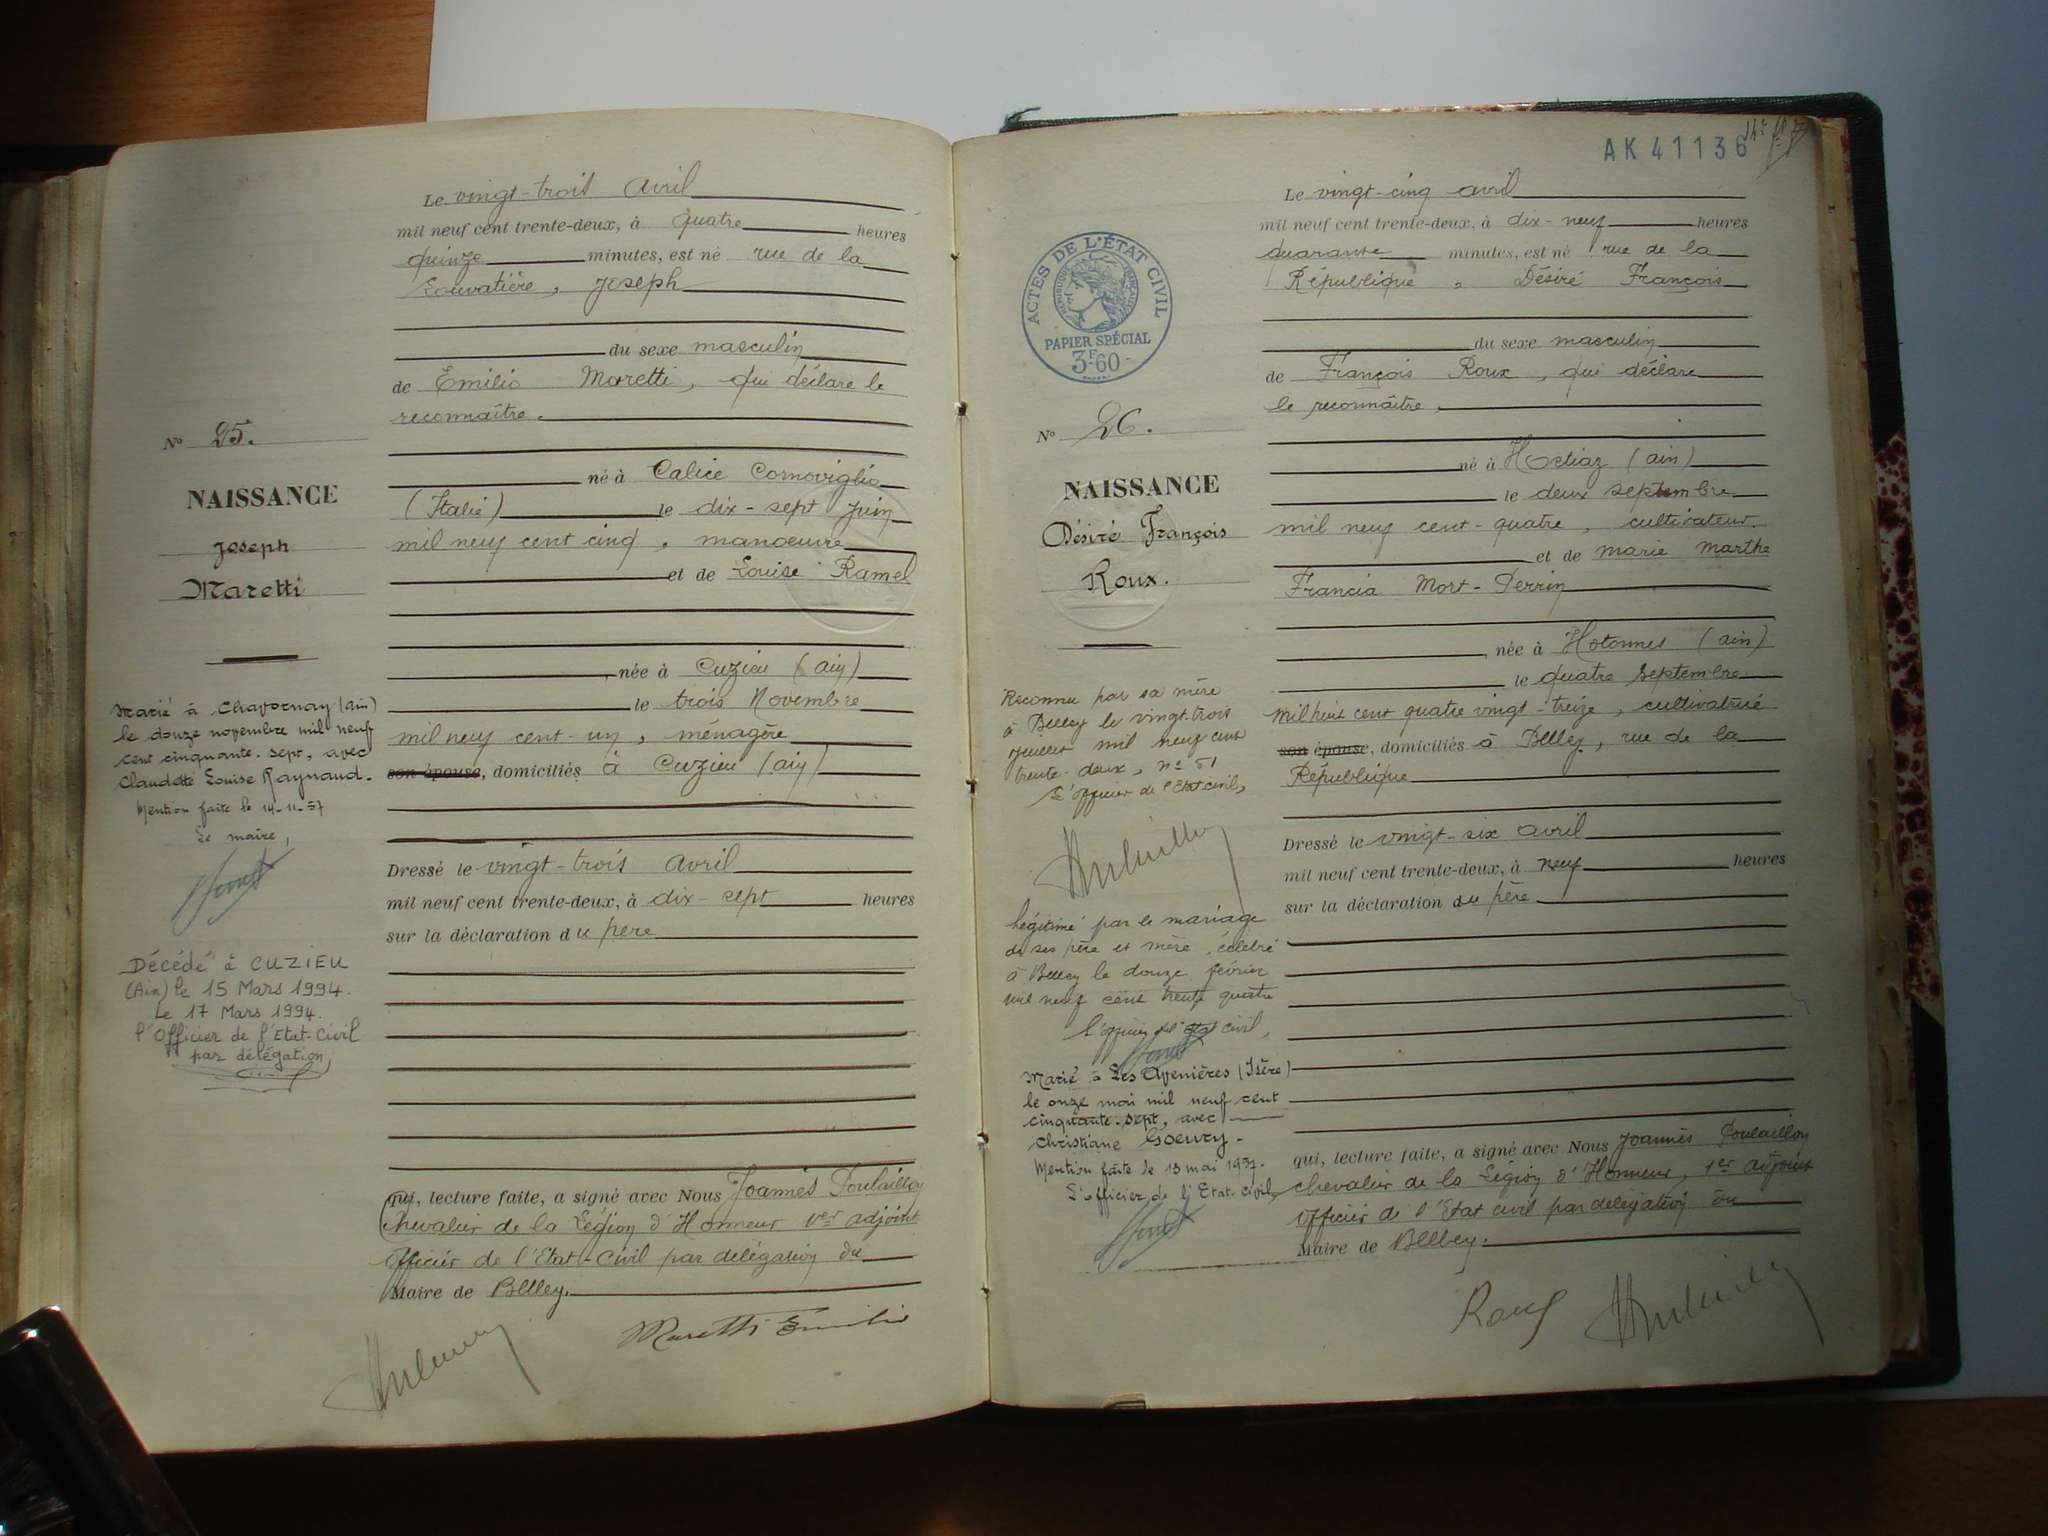 Le vingt-trois Avril
mil neuf cent trente-deux, à quatre heures
quinze minutes, est né rue de la
Louvatière, Joseph
du sexe masculin
de Emilio Maretti, qui déclare le
reconnaître.
né à Calice Cornoviglio
(Italie) le dix-sept Juin
mil neuf cent cinq, manoeuvre
et de Louise Ramel
née à Cuzieu (ain)
le trois Novembre
mil neuf cent-un, ménagère
son épouse, domiciliés à Cuzieu (ain)
Dressé le vingt-trois Avril
mil neuf cent trente-deux, à dix-sept heures
sur la déclaration du père
qui, lecture faite, a signé avec Nous Joannès Poulailloy
Chevalier de la Légion d'Honneur 1er adjoint
Officier de l'Etat-Civil par délégation du
Maire de Belley.
Maretti Emilio
No 25.
NAISSANCE
Joseph
Maretti
Marié à Chavornay (ain)
le douze novembre mil neuf
cent cinquante-sept, avec
Claudette Louise Raynaud.
Mention faite le 14-11-57
Le maire,
Décédé à CUZIEU
(Ain) le 15 Mars 1994.
Le 17 Mars 1994.
l'Officier de l'Etat-Civil
par délégation,
AK 41136
Le vingt-cinq avril
mil neuf cent trente-deux, à dix-neuf heures
quarante minutes, est né rue de la
République, Désiré François
du sexe masculin
de François Roux, qui déclare
le reconnaître.
né à Hostiaz (ain)
le deux septembre
mil neuf cent-quatre, cultivateur
et de Marie Marthe
Francia Mort-Perrin
née à Hotonnes (ain)
le quatre Septembre
mil huit cent quatre vingt-treize, cultivatrice
son épouse, domiciliés à Belley, rue de la
République
Dressé le vingt-six avril
mil neuf cent trente-deux, à neuf heures
sur la déclaration du père
qui, lecture faite, a signé avec Nous Joannès Poulailloy
Chevalier de la Légion d'Honneur, 1er adjoint
Officier de l'Etat civil par délégation du
Maire de Belley.
Roux
ACTES DE L'ÉTAT CIVIL
RÉPUBLIQUE FRANÇAISE
PAPIER SPÉCIAL
3F60
No 26.
NAISSANCE
Désiré François
Roux.
Reconnu par sa mère
à Belley le vingt-trois
juillet mil neuf cent
trente-deux, No 51
L'officier de l'Etat civil,
Légitimé par le mariage
de ses père et mère, célébré
à Belley le douze février
mil neuf cent trente quatre
L'officier de l'état civil,
Marié à Les Avenières (Isère)
le onze mai mil neuf cent
cinquante-sept, avec
Christiane Goeury.
Mention faite le 13 mai 1957.
L'officier de l'Etat-civil,